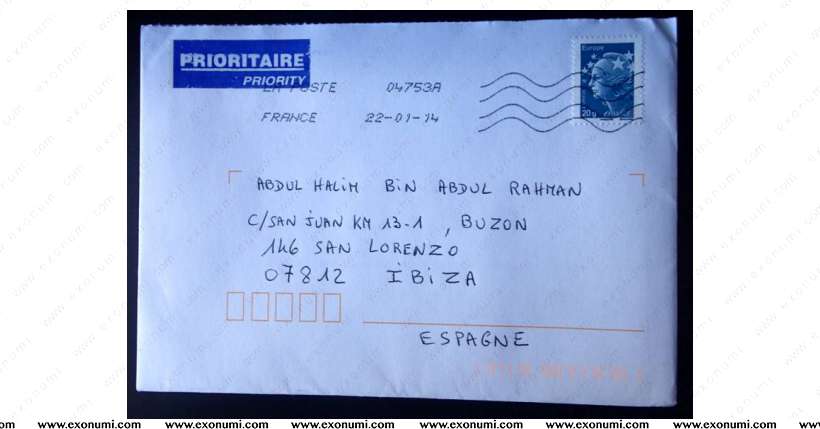 PRIORITAIRE
PRIORITY
LA POSTE 04753A
FRANCE 22-01-14
Europe
20g
ABDUL HALIM BIN ABDUL RAHMAN
C/SAN JUAN KM 13-1, BUZON
146 SAN LORENZO
07812 IBIZA
ESPAGNE
www.exonumi.com www.exonumi.com www.exonumi.com www.exonumi.com www.exonumi.com www.exonumi.com